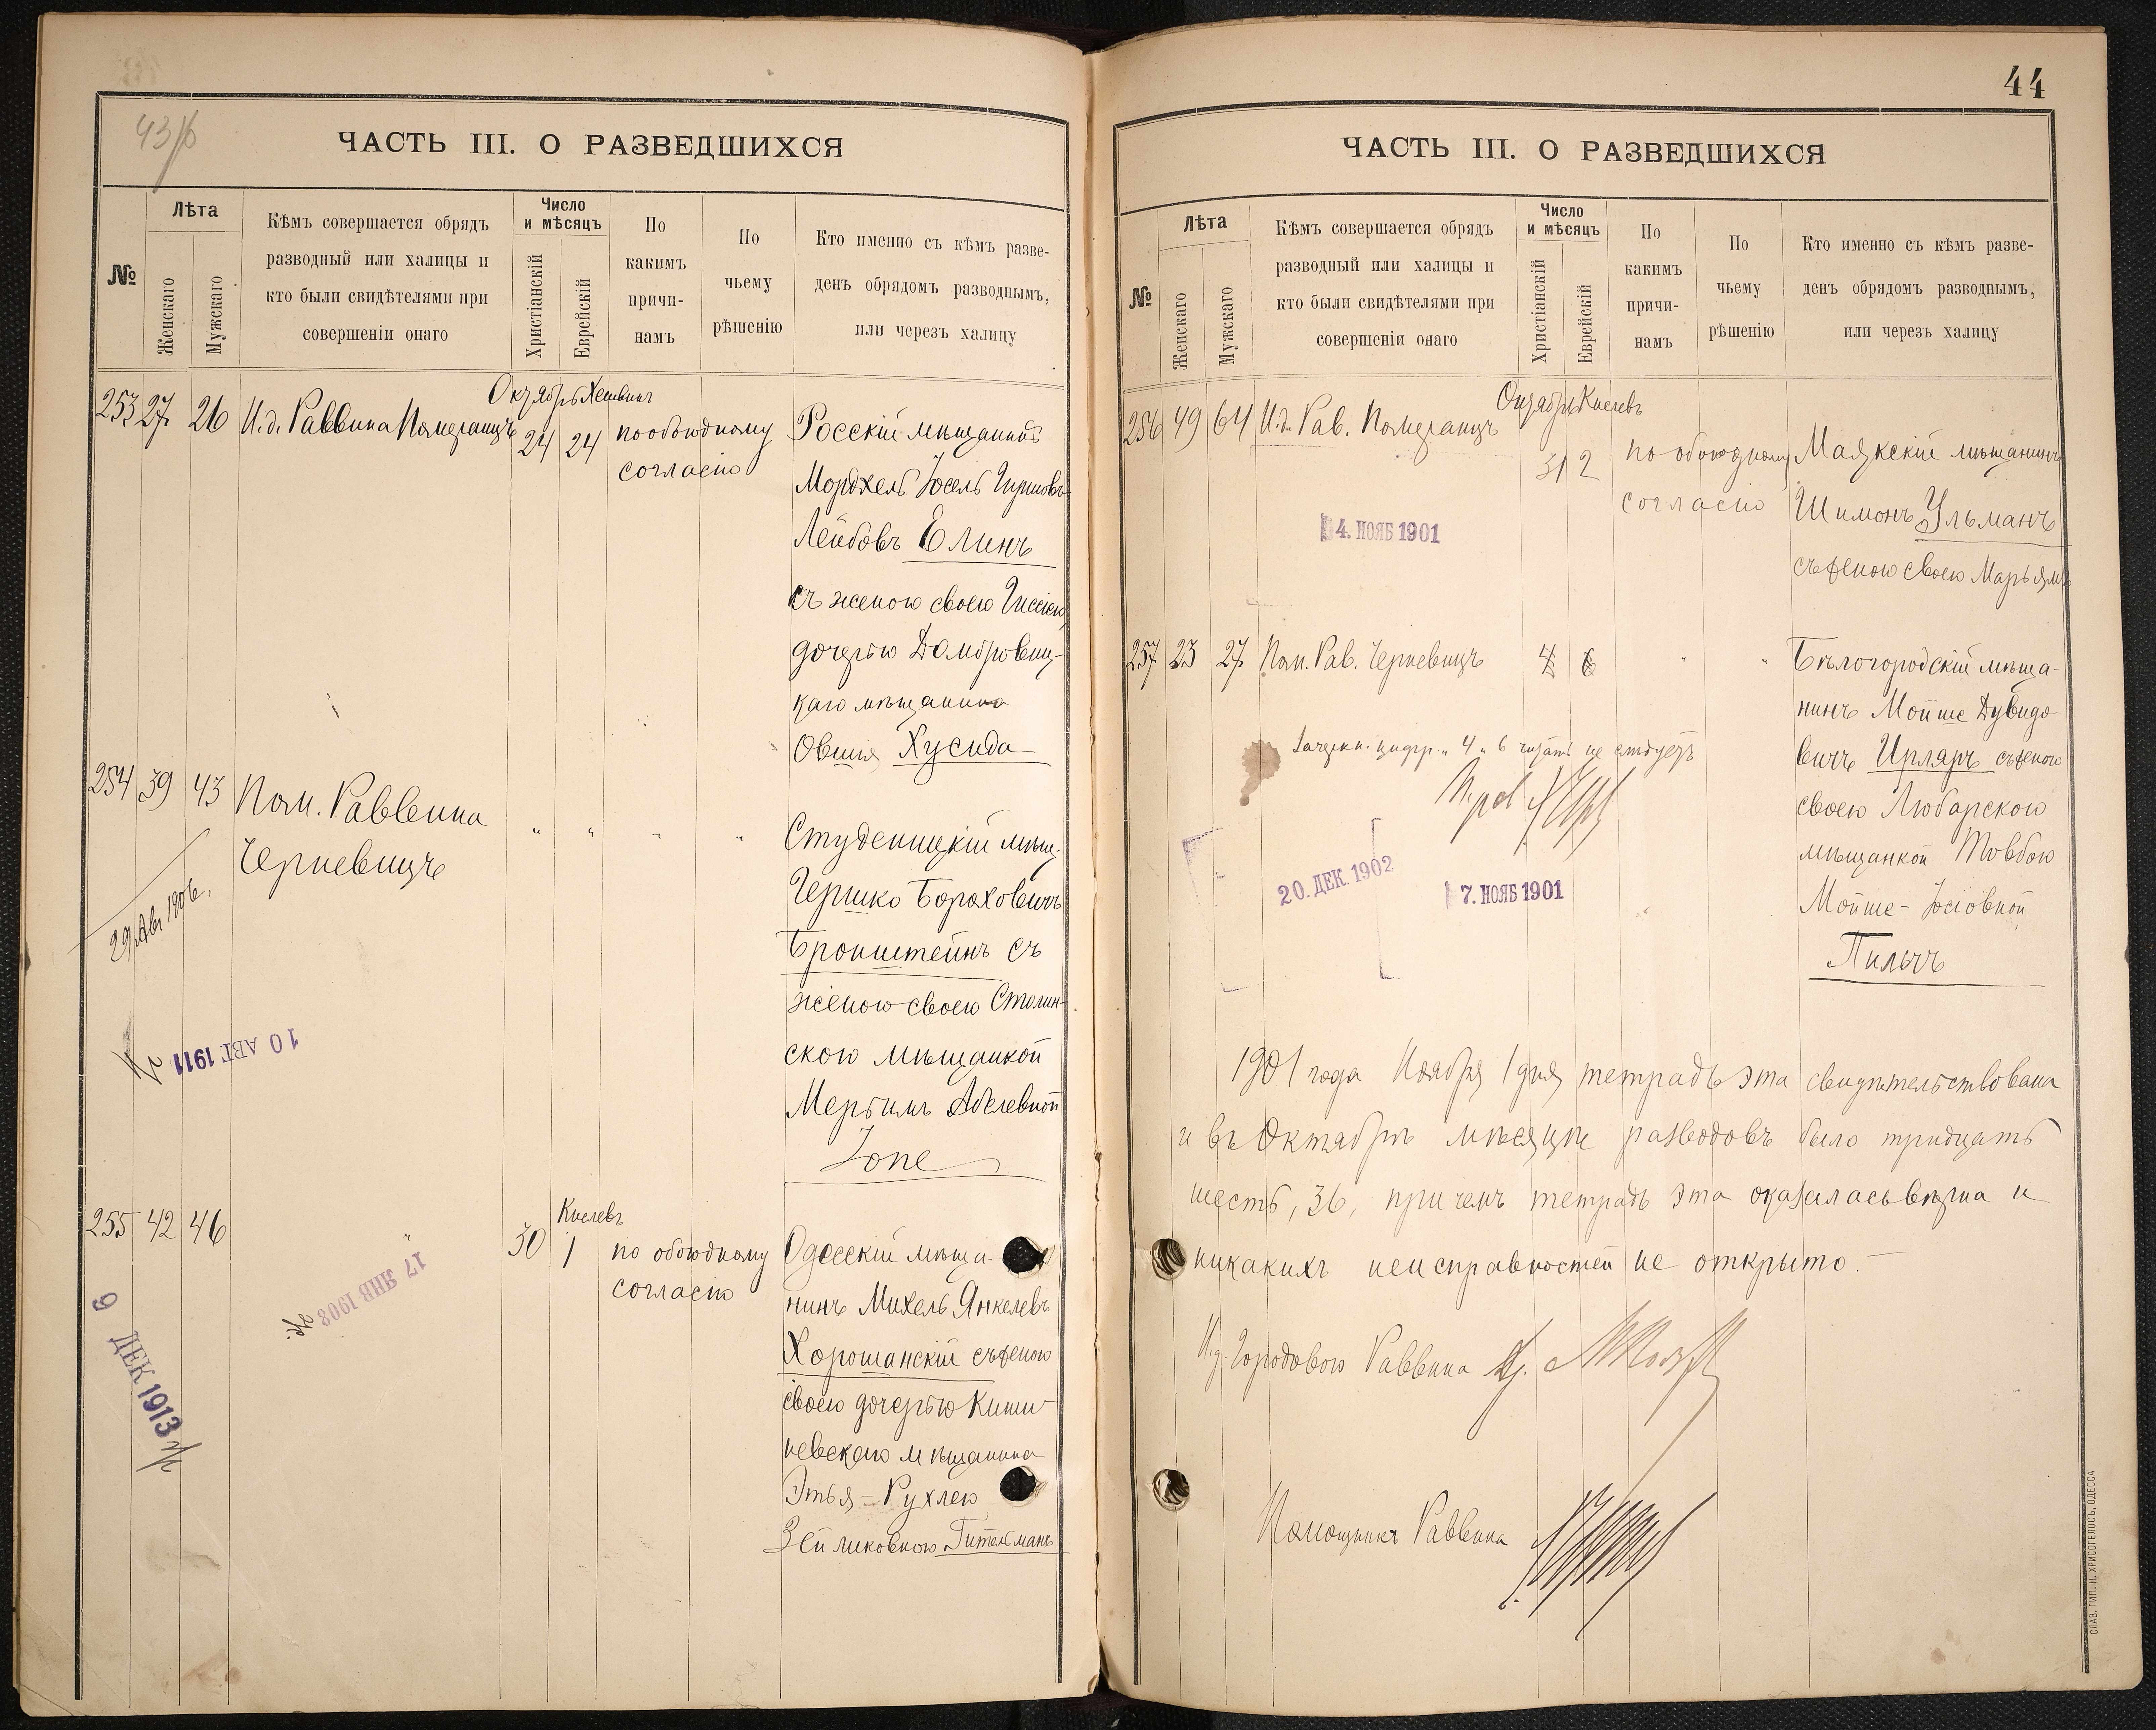 43/б
ЧАСТЬ III. О РАЗВЕДШИХСЯ
№
Лѣта
Женскаго
Мужскаго
Кѣмъ совершается обрядъ
разводный или халицы и
кто были свидѣтелями при
совершеніи онаго
Число
и мѣсяцъ
Христіанскій
Еврейскій
По
какимъ
причи-
намъ
По
чьему
рѣшенію
Кто именно съ кѣмъ разве-
денъ обрядомъ разводнымъ,
или черезъ халицу
Октябрь Хешванъ
253 27 26 И.д. Раввина Померанцъ 24 24 по обоюдному
согласію
Росскій мѣщанинъ
Мордхель Іосель Гиршовъ
Лейбовъ Елинъ
съ женою своею Гиссею,
дочерью Домбровиц-
каго мѣщанина
Овшія Хусида
254 39 43 Пом. Раввина
Черневицъ
" " " "
29 Авг 1906.
Студеницкій мѣщ.
Гершко Бороховичъ
Бронштейнъ съ
женою своею Столин-
скою мѣщанкой
Мерьимъ Абелевной
10 АВГ. 1911
255 42 46 " 30 1 по обоюдному
согласію
Кислевъ
17 ЯНВ 1908
9 ДЕК 1913
Одесскій мѣща-
нинъ Михель Янкелевъ
Хорошанскій съ женою
своею дочерью Киши-
невскаго мѣщанина
Этья-Рухлею
Зейликовною Гительманъ
44
ЧАСТЬ III. О РАЗВЕДШИХСЯ
№
Лѣта
Женскаго
Мужскаго
Кѣмъ совершается обрядъ
разводный или халицы и
кто были свидѣтелями при
совершеніи онаго
Число
и мѣсяцъ
Христіанскій
Еврейскій
По
какимъ
причи-
намъ
По
чьему
рѣшенію
Кто именно съ кѣмъ разве-
денъ обрядомъ разводнымъ,
или черезъ халицу
Октябрь Кислевъ
256 49 64 И.д. Рав. Померанцъ 31 2 по обоюдному
согласію
4. НОЯБ 1901
Маякскій мѣщанинъ
Шимонъ Ульманъ
съ женою своею Марьямъ
257 23 27 Пом. Рав. Черневицъ 4 6 " "
Зачеркн. цифр. „4„ 6 читать не слѣдуетъ
20. ДЕК. 1902
7. НОЯБ 1901
Бѣлогородскій мѣща-
нинъ Мойше Дувидо-
вичъ Ирляръ съ женою
своею Любарскою
мѣщанкой Товбою
Мойше-Іосіовной
Пильчъ
1901 года Ноября 1 дня тетрадь эта свидѣтельствована
и въ Октябрѣ мѣсяцѣ разводовъ было тридцать
шесть, 36, при чемъ тетрадь эта оказалась вѣрна и
никакихъ неисправностей не открыто.
И.д. Городового Раввина
Помощникъ Раввина
СЛАВ. ТИП. Н. ХРИСОГЕЛОСЪ, ОДЕССА